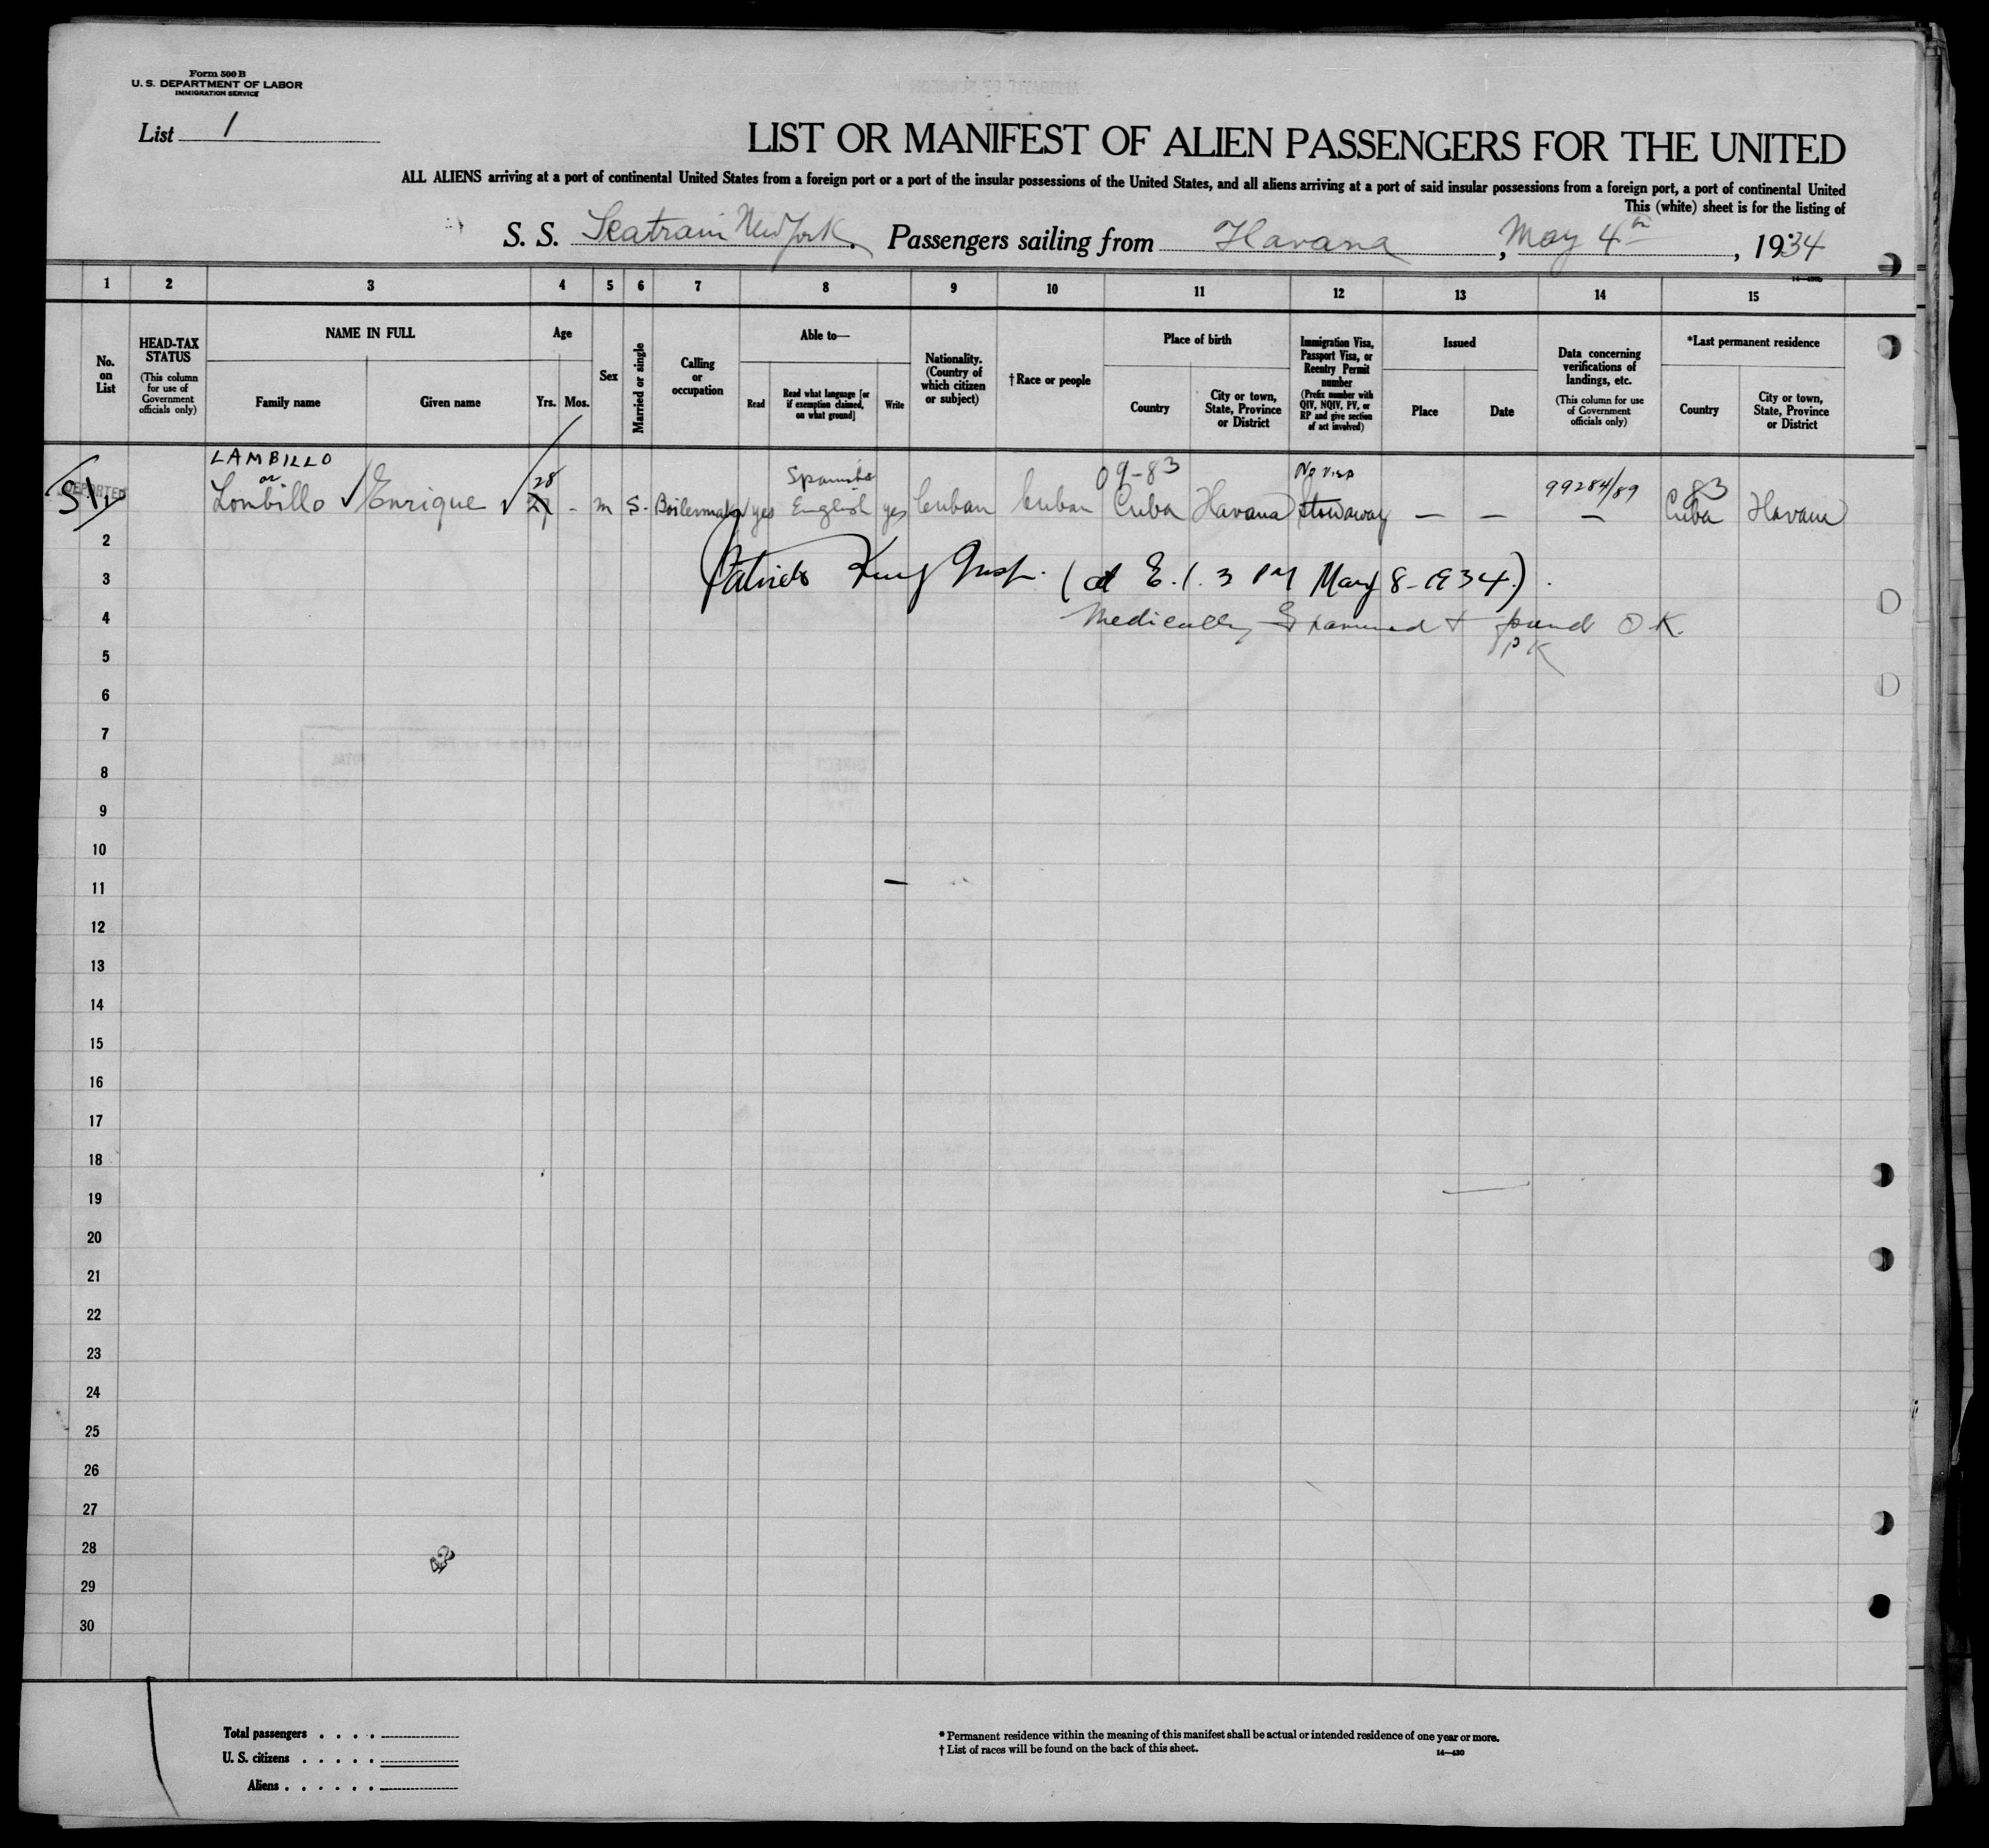 Form 500 B
U. S. DEPARTMENT OF LABOR
IMMIGRATION SERVICE
List 1
LIST OR MANIFEST OF ALIEN PASSENGERS FOR THE UNITED
ALL ALIENS arriving at a port of continental United States from a foreign port or a port of the insular possessions of the United States, and all aliens arriving at a port of said insular possessions from a foreign port, a port of continental United
This (white) sheet is for the listing of
S. S. Seatrain New York. Passengers sailing from Havana, May 4th, 1934
1 2 3 4 5 6 7 8 9 10 11 12 13 14 15
No. on List
HEAD-TAX STATUS (This column for use of Government officials only)
NAME IN FULL
Family name Given name
Age
Yrs. Mos.
Sex
Married or single
Calling or occupation
Able to—
Read Read what language [or if exemption claimed, on what ground] Write
Nationality. (Country of which citizen or subject)
† Race or people
Place of birth
Country City or town, State, Province or District
Immigration Visa, Passport Visa, or Reentry Permit number (Prefix number with QIV, NQIV, PV, or RP and give section of act involved)
Issued
Place Date
Data concerning verifications of landings, etc. (This column for use of Government officials only)
*Last permanent residence
Country City or town, State, Province or District
LAMBILLO 28 Spanish 09-83 No visa 99284/89 83
or
DEPORTED Lombillo √ Enrique √ 27 - m S. Boilermaker yes English yes Cuban Cuban Cuba Havana Stowaway — — — Cuba Havana
2
3 Patrick King Insp. (at E. I. 3 PM May 8-1934).
4 Medically Examined + found O K.
5 PK
6
7
8
9
10
11
12
13
14
15
16
17
18
19
20
21
22
23
24
25
26
27
28
29
30
Total passengers . . . .
U. S. citizens . . . . .
Aliens . . . . . .
* Permanent residence within the meaning of this manifest shall be actual or intended residence of one year or more.
† List of races will be found on the back of this sheet.
14—430